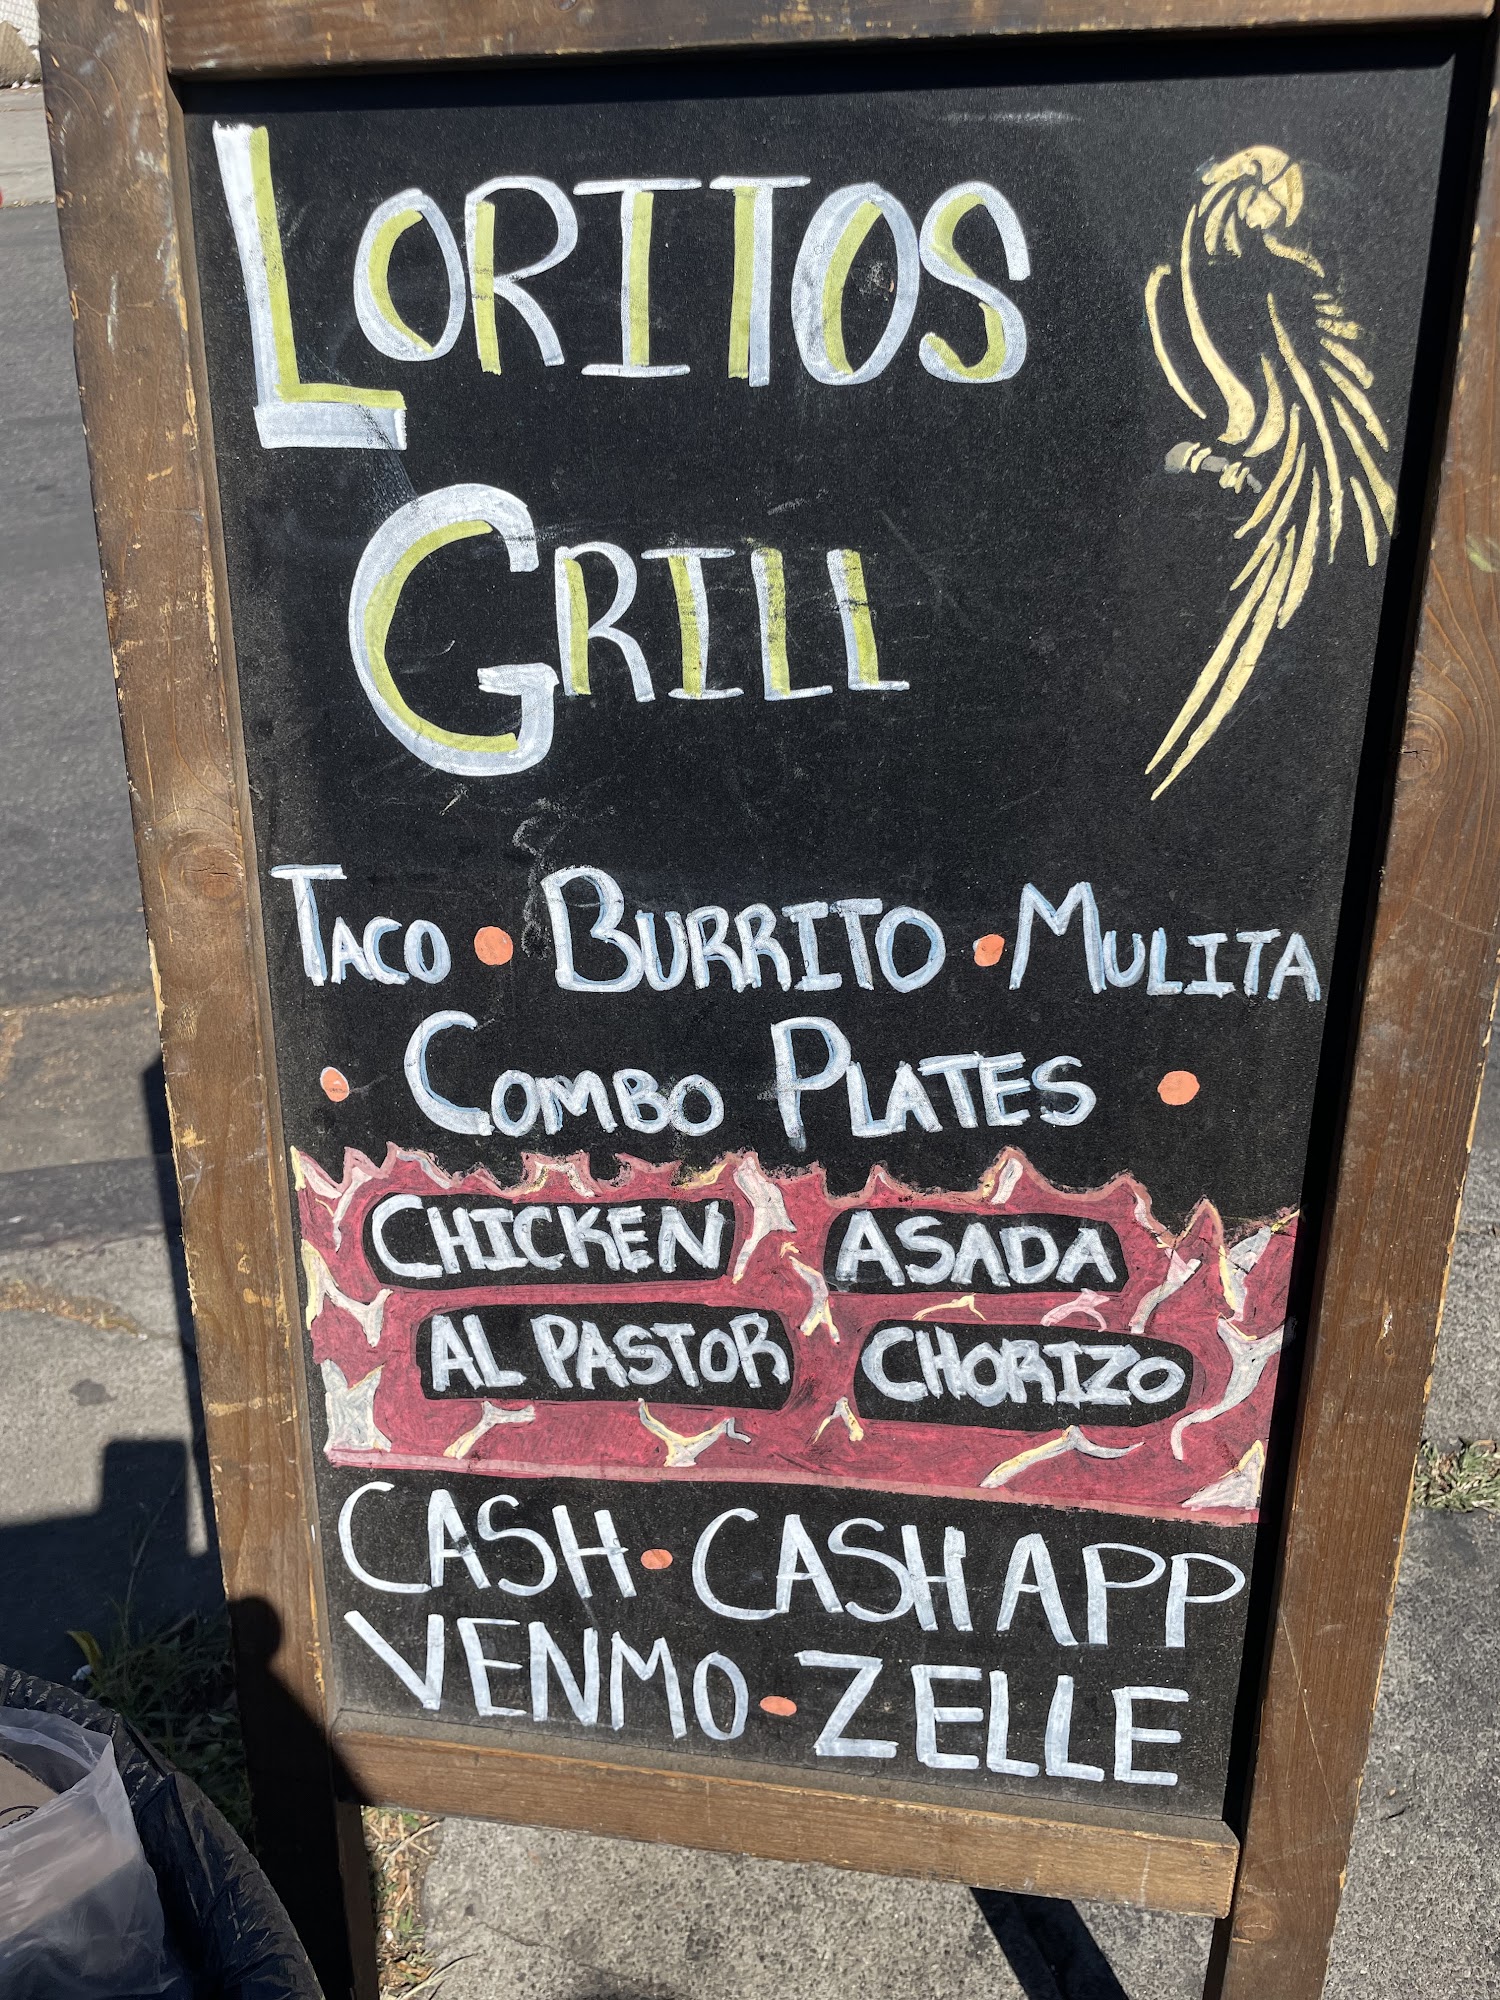 LORITOS
GRILL
TACO • BURRITO • MULITA
• COMBO PLATES •
CHICKEN ASADA
AL PASTOR CHORIZO
CASH • CASH APP
VENMO • ZELLE